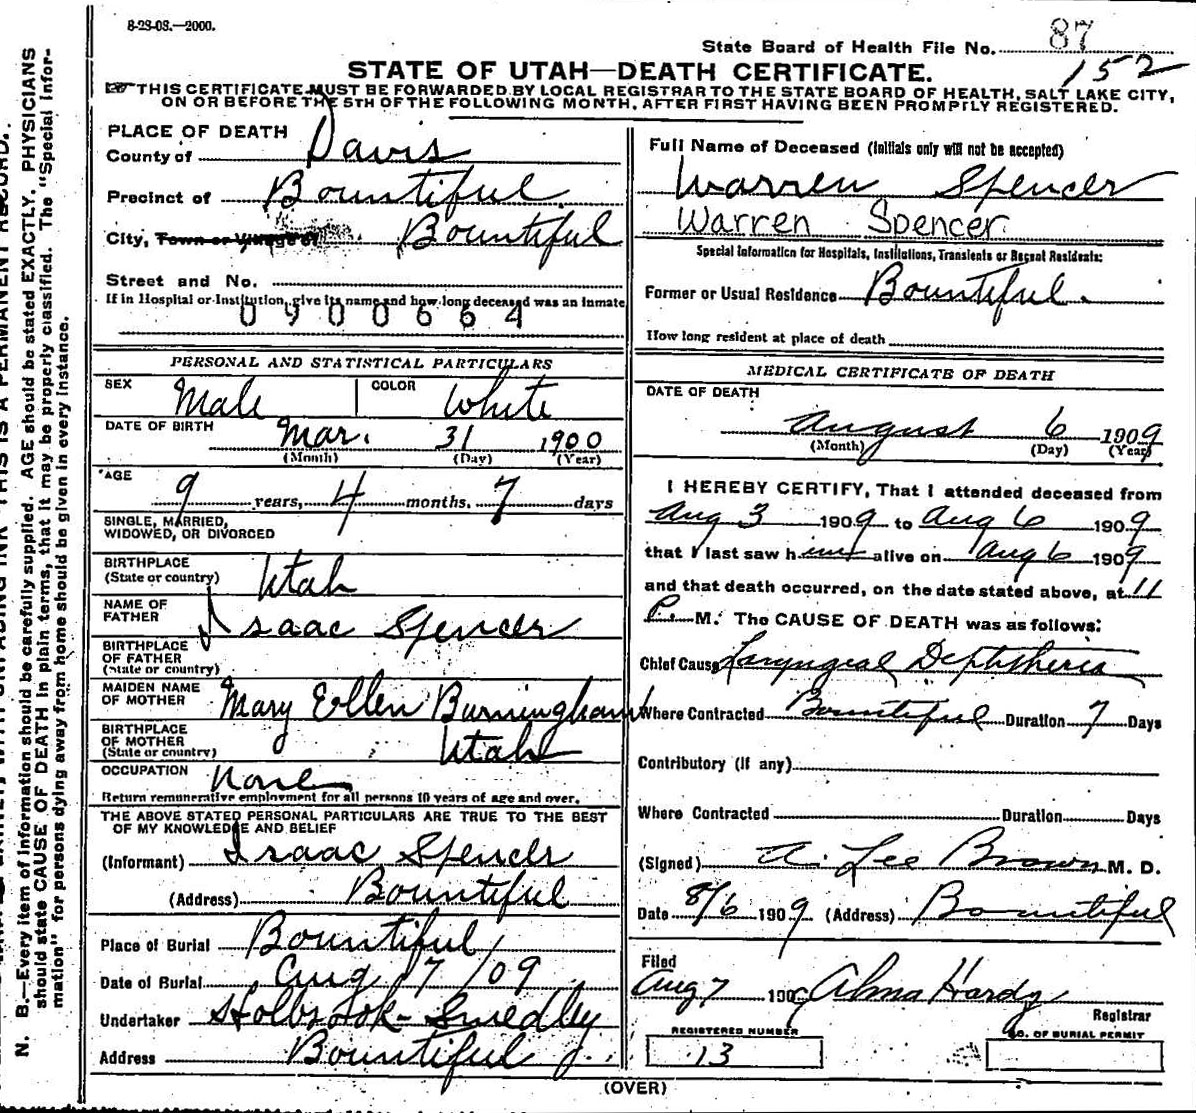 8-23-08.—2000.
State Board of Health File No. 87
152
STATE OF UTAH—DEATH CERTIFICATE.
THIS CERTIFICATE MUST BE FORWARDED BY LOCAL REGISTRAR TO THE STATE BOARD OF HEALTH, SALT LAKE CITY,
ON OR BEFORE THE 5TH OF THE FOLLOWING MONTH, AFTER FIRST HAVING BEEN PROMPTLY REGISTERED.
PLACE OF DEATH
County of Davis
Precinct of Bountiful.
City, Town or Village of Bountiful
Street and No.
If in Hospital or Institution, give its name and how long deceased was an inmate
0900664
PERSONAL AND STATISTICAL PARTICULARS
SEX Male COLOR White
DATE OF BIRTH Mar. 31 1900
(Month) (Day) (Year)
AGE 9 years, 4 months, 7 days
SINGLE, MARRIED,
WIDOWED, OR DIVORCED
BIRTHPLACE
(State or country) Utah
NAME OF
FATHER Isaac Spencer
BIRTHPLACE
OF FATHER
(State or country)
MAIDEN NAME
OF MOTHER Mary Ellen Burningham
BIRTHPLACE
OF MOTHER
(State or country) Utah
OCCUPATION None
Return remunerative employment for all persons 10 years of age and over.
THE ABOVE STATED PERSONAL PARTICULARS ARE TRUE TO THE BEST
OF MY KNOWLEDGE AND BELIEF
(Informant) Isaac Spencer
(Address) Bountiful
Place of Burial Bountiful
Date of Burial Aug 7/09
Undertaker Holbrook-Smedley
Address Bountiful
Full Name of Deceased (Initials only will not be accepted)
Warren Spencer
Warren Spencer
Special Information for Hospitals, Institutions, Transients or Recent Residents:
Former or Usual Residence Bountiful.
How long resident at place of death
MEDICAL CERTIFICATE OF DEATH
DATE OF DEATH
August 6 1909
(Month) (Day) (Year)
I HEREBY CERTIFY, That I attended deceased from
Aug 3 1909 to Aug 6 1909
that I last saw him alive on Aug 6 1909
and that death occurred, on the date stated above, at 11
P. M. The CAUSE OF DEATH was as follows:
Chief Cause Laryngeal Diphtheria
Where Contracted Bountiful Duration 7 Days
Contributory (if any)
Where Contracted Duration Days
(Signed) A. Lee Brown M. D.
Date 8/6 1909 (Address) Bountiful
Filed
Aug 7 1909 Alma Hardy
Registrar
REGISTERED NUMBER NO. OF BURIAL PERMIT
13
(OVER)
N. B.—Every item of information should be carefully supplied. AGE should be stated EXACTLY. PHYSICIANS
should state CAUSE OF DEATH in plain terms, that it may be properly classified. The "Special Infor-
mation" for persons dying away from home should be given in every instance.